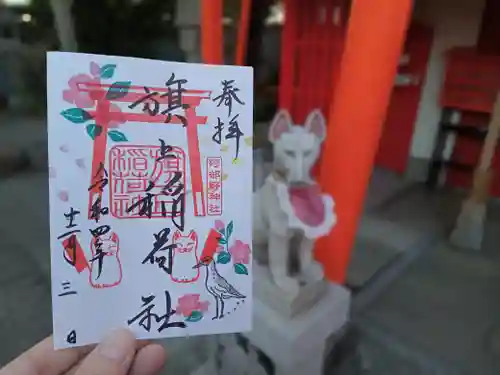 奉拝
阿部野神社
旗上稲荷社
令和四年
十二月三日